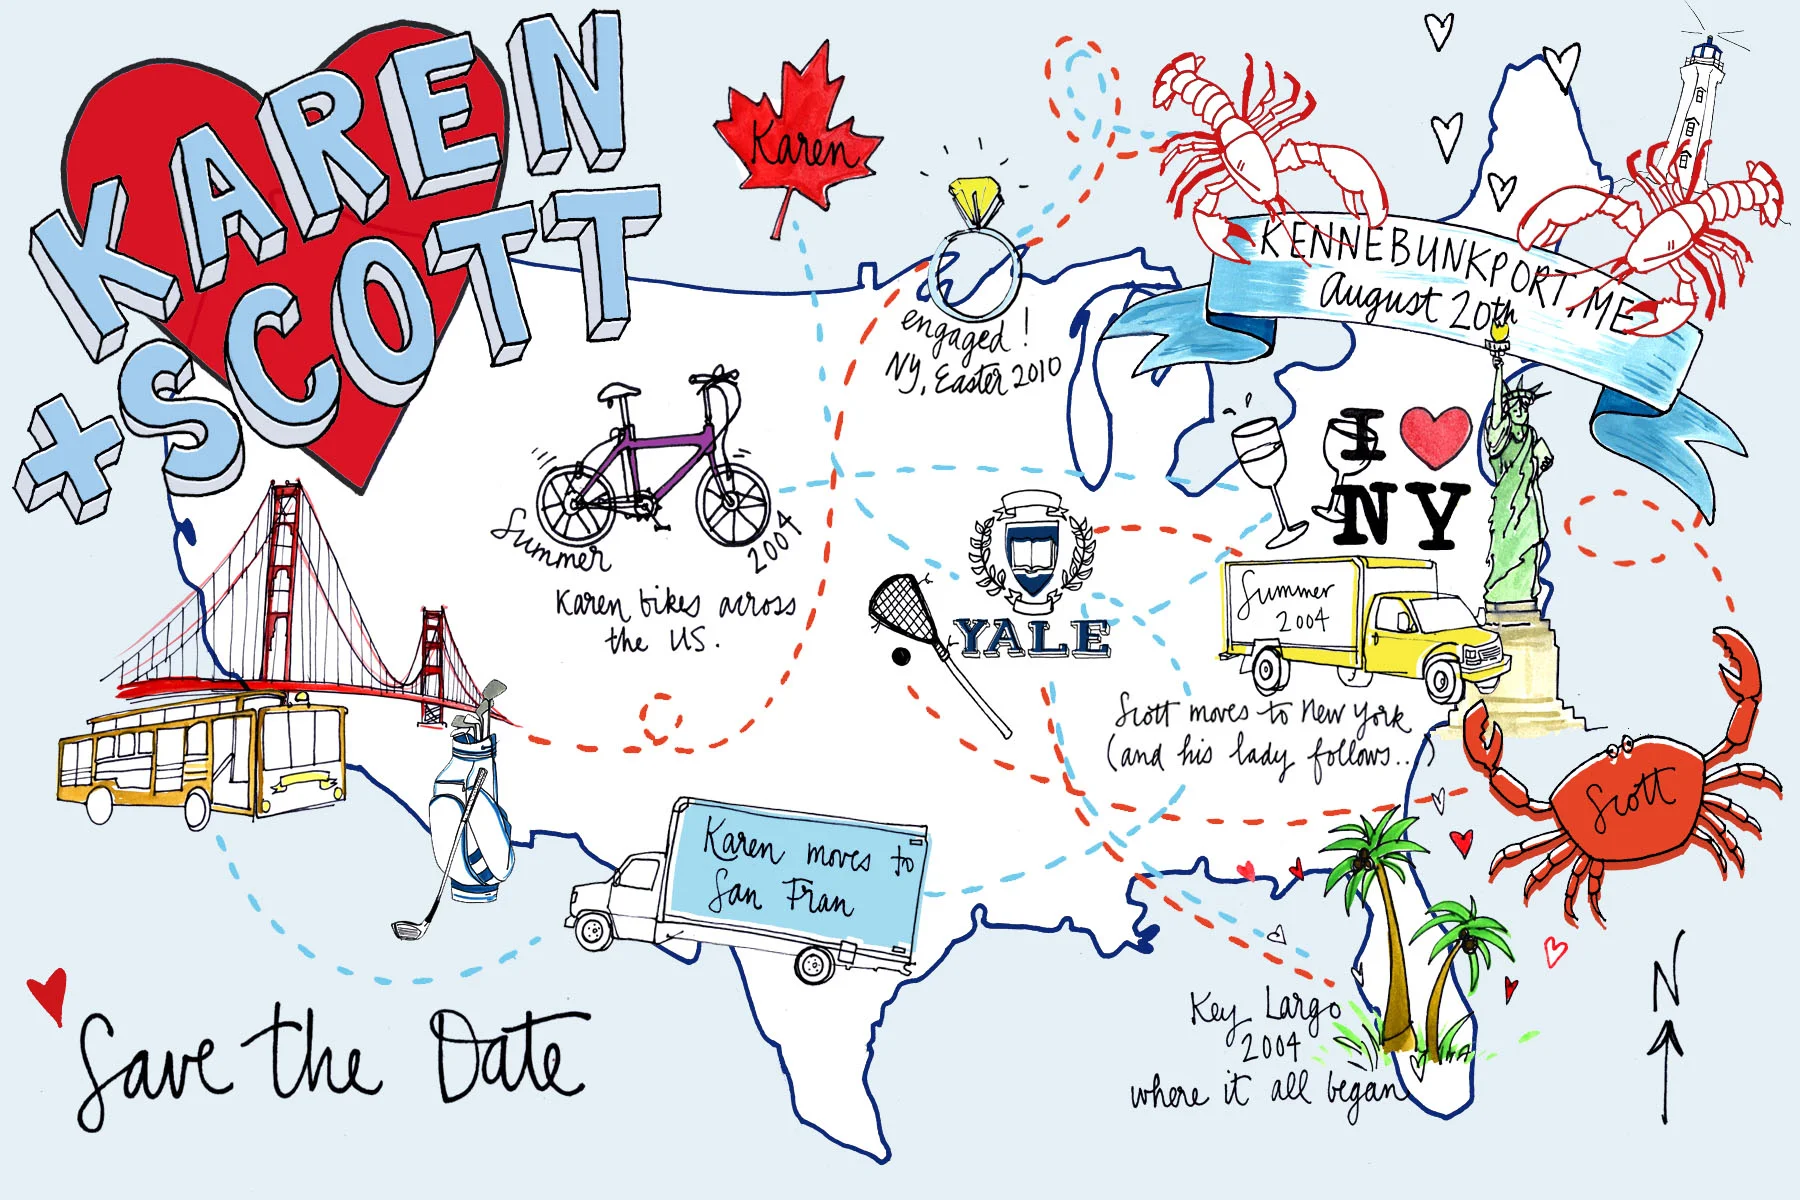 KAREN
+ SCOTT
Karen
engaged!
NY, Easter 2010
KENNEBUNKPORT, ME
August 20th
I ♥
NY
Summer
2004
Karen bikes across
the US.
YALE
Summer
2004
Scott moves to New York
(and his lady follows...)
Scott
Karen moves to
San Fran
Key Largo
2004
where it all began
Save the Date
N